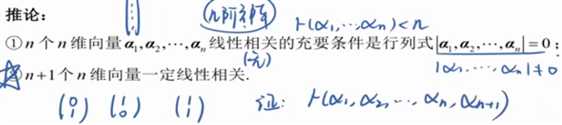 推论：
(n阶方阵) r(α₁,⋯,αₙ)<n
①n 个 n 维向量 α₁,α₂,⋯,αₙ 线性相关的充要条件是行列式|α₁,α₂,⋯,αₙ|=0；
|α₁ ⋯ αₙ|≠0
n+1 个 n 维向量一定线性相关.
(0 1) (1 0) (1 1) 证: r(α₁,α₂,⋯,αₙ,αₙ₊₁)